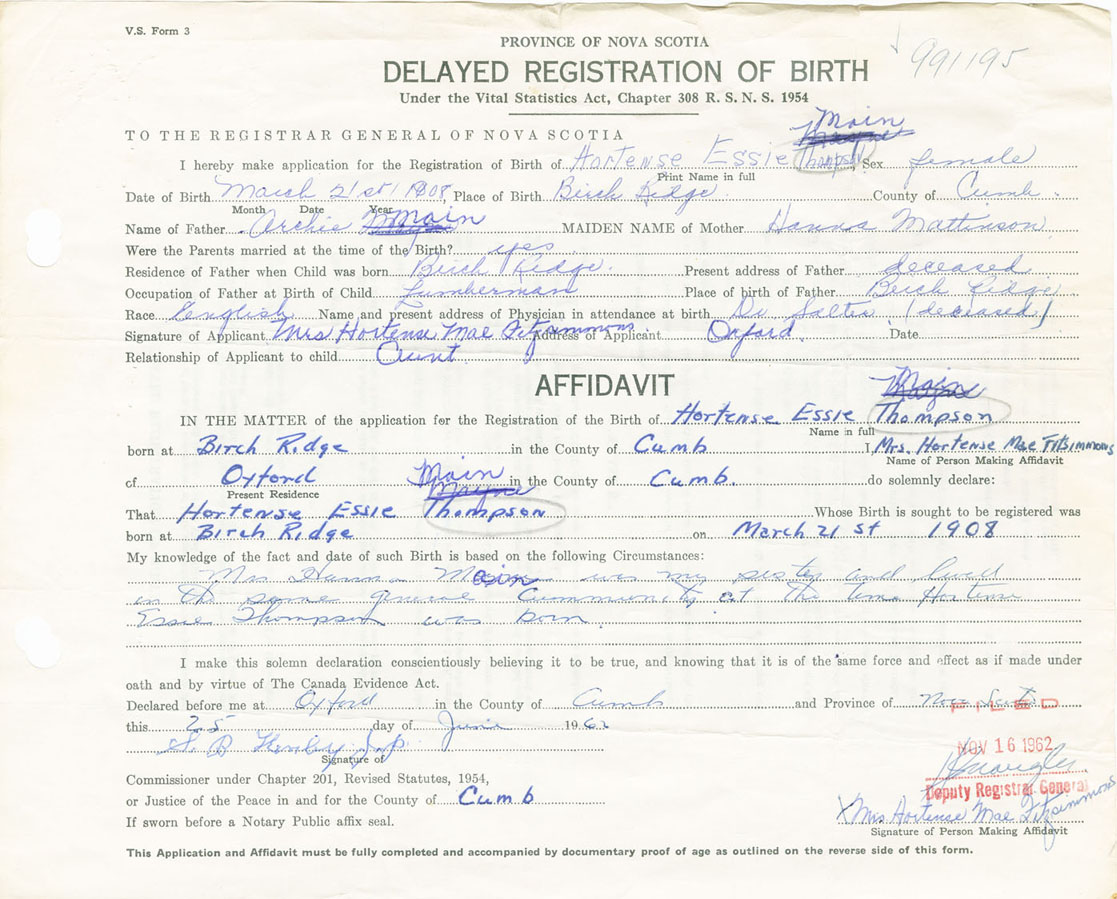 V.S. Form 3
PROVINCE OF NOVA SCOTIA
991195
DELAYED REGISTRATION OF BIRTH
Under the Vital Statistics Act, Chapter 308 R. S. N. S. 1954
Main
TO THE REGISTRAR GENERAL OF NOVA SCOTIA Mayne
I hereby make application for the Registration of Birth of Hortense Essie Thompson, Sex female
Print Name in full
Date of Birth March 21st, 1908, Place of Birth Birch Ridge County of Cumb.
Month Date Year
Name of Father Archie Main MAIDEN NAME of Mother Hanna Mattinson
Were the Parents married at the time of the Birth? yes
Residence of Father when Child was born Birch Ridge. Present address of Father deceased
Occupation of Father at Birth of Child Lumberman Place of birth of Father Birch Ridge
Race English Name and present address of Physician in attendance at birth Dr Salter (deceased)
Signature of Applicant Mrs Hortense Mae Fitzsimmons. Address of Applicant Oxford. Date
Relationship of Applicant to child Aunt
AFFIDAVIT
Main
Mayne
IN THE MATTER of the application for the Registration of the Birth of Hortense Essie Thompson
Name in full
born at Birch Ridge in the County of Cumb I, Mrs. Hortense Mae Fitsimmons
Name of Person Making Affidavit
Main
of Oxford in the County of Cumb. do solemnly declare:
Present Residence Mayne
That Hortense Essie Thompson Whose Birth is sought to be registered was
born at Birch Ridge on March 21st 1908
My knowledge of the fact and date of such Birth is based on the following Circumstances:
Mrs Hanna Main was my sister and lived
in the same general Cummunity at the time Hortense
Essie Thompson was born.
I make this solemn declaration conscientiously believing it to be true, and knowing that it is of the same force and effect as if made under
oath and by virtue of The Canada Evidence Act.
Declared before me at Oxford in the County of Cumb and Province of Nova Scotia
FILED
this 25 day of June 1962
NOV 16 1962
Signature of
Commissioner under Chapter 201, Revised Statutes, 1954,
Deputy Registrar General
or Justice of the Peace in and for the County of Cumb
X Mrs Hortense Mae Fitzsimmons
If sworn before a Notary Public affix seal.
Signature of Person Making Affidavit
This Application and Affidavit must be fully completed and accompanied by documentary proof of age as outlined on the reverse side of this form.